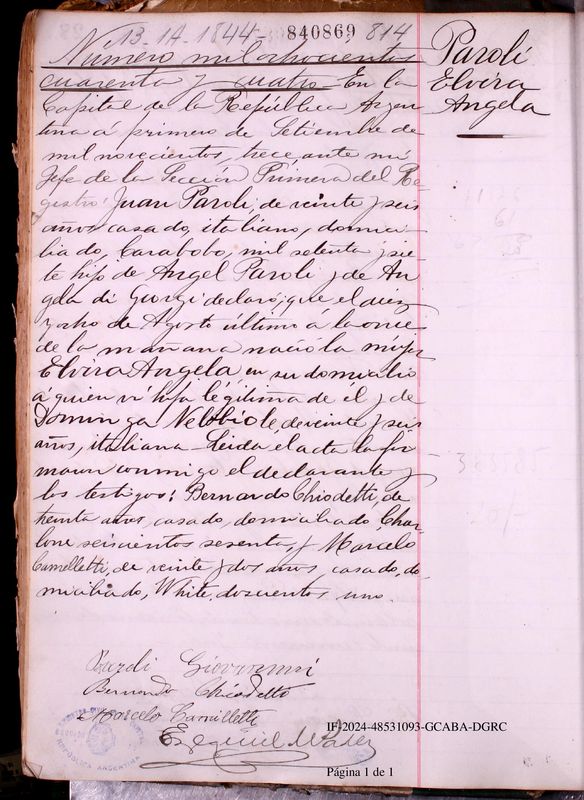 13-14-1844- 840869 814
Número mil ochocientos
cuarenta y cuatro En la
Capital de la República Argen
tina á primero de Setiembre de
mil novecientos, trece, ante mí
Jefe de la Sección Primera del Re-
gistro: Juan Paroli, de veinte y seis
años casado, italiano, domici
liado, Carabobo, mil setenta y sie
te hijo de Angel Paroli y de An
gela di Giorgi declaró; que el diez
y ocho de Agosto último á la once
de la mañana nació la mujer
Elvira Angela, en su domicilio
á quien ví hija legítima de él y de
Dominga de veinte y seis
años, italiana Leida el acta la fir
maron conmigo el declarante y
los testigos: Bernardo Chiodetti, de
treinta años, casado, domiciliado Char
lone seiscientos sesenta, y Marcelo
Camelletti, de veinte y dos años casado, do-
miciliado, White, doscientos uno.
Paroli
Elvira
Angela
Giovanni
Bernardo Chiodetti
Marcelo Camilletti
Ezequiel
REPÚBLICA ARGENTINA
IF-2024-48531093-GCABA-DGRC
Página 1 de 1